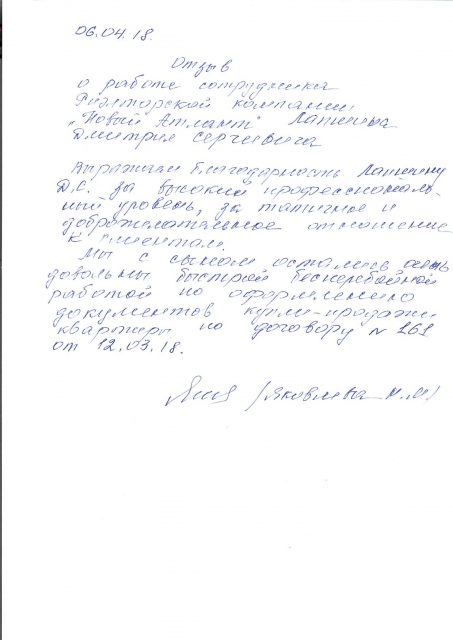 06.04.18.
Отзыв
о работе сотрудника
Риэлторской компании
"Новый Атлант" Лапшина
Дмитрия Сергеевича
Выражаем благодарность Лапшину
Д.С. за высокий профессиональ-
ный уровень, за тактичное и
доброжелательное отношение
к клиентам.
Мы с сыном остались очень
довольны быстрой бесперебойной
работой по оформлению
документов купли-продажи
квартиры по договору № 161
от 12.03.18.
(Яковлева Н.М)